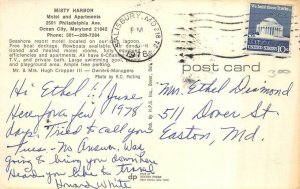 MISTY HARBOR
Motel and Apartments
2501 Philadelphia Ave.
Ocean City, Maryland 21842
Phone: 301-289-7284
Seashore resort motel located on lagoon.
Free boat dockage. Rowboats available.
and heated motel rooms,
efficiencies and apartments.
TV, and private bath. Large swimming pool,
and playground area. Ample free parking.
Mr. & Mrs. Hugh Cropper III — Owners-Managers
Photo by R.C. Pulling
SALISBURY, MD 218
PM
1978
UNITED STATES 10c
post card
38
Hi Ethel! June
Here for a few 1978
days. Tried to call you
Twice - No Answer. Was
going to bring you down here
Heard you like to travel
Howard White
Mrs Ethel Desmond
511 Dover St
Easton, Md.
dp